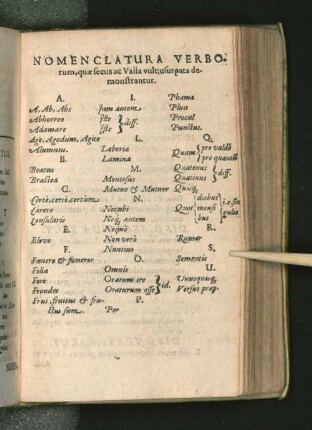 NOMENCLATURA VERBO-
rum, quæ secus ac Valla vult, usurpata de-
monstrantur.
A.
A. Ab. Abs
Abhorreo
Adamare
Age. Agedum. Agite
Alumnus.
B.
Beatus
Bractea
C.
Certè, certè, certium
Carere
Consularis
E.
Elevo
F.
Fœnero & fœneror
Folia
Fore
Frondes
Frui, fruitus & fru-
ctus sum.
I.
Jam autem
Iste
Ipse } diff.
L.
Laboria
Lamina
M.
Mentosus
Mutuo & Mutuor
N.
Necubi
Neq; autem
Nequè
Non verò
Nuncio
O.
Omnis
Oratum ire
Oraturum esse } id.
P.
Per
Phama
Plus
Procul
Punctus.
Q.
Quam { pro valdè
pro quantum
Quatenus
Quatinus } diff.
Quisq;
Quot { diebus
mensi
bus } i. e. sin
gulis
R.
Rumor
S.
Sementis
U.
Unusquisq;
Versus præp.